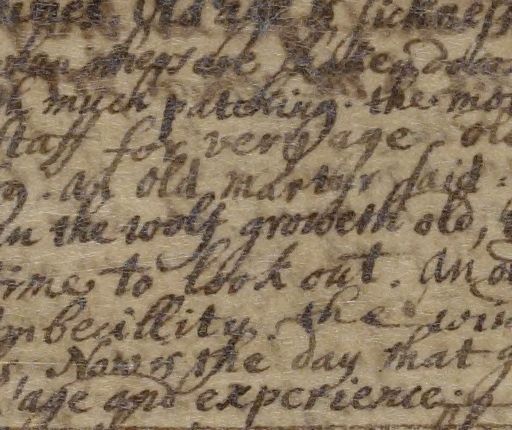 old age is sickness
much patching. the mo
staff for very age. old
an old martyr said:
n the wolf groweth old,
time to look out. An o
Imbecillity. the win
Now is the day that g
age and experience.